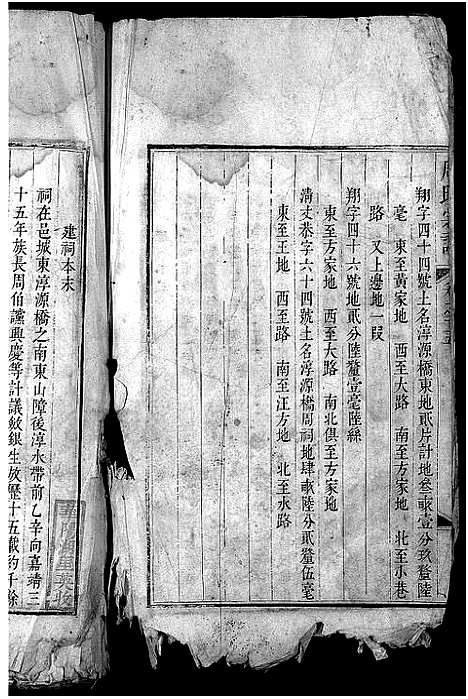 翔字四十四號土名淳源橋東地貳片計地叄畝壹分玖釐陸
毫 東至黃家地 西至大路 南至方家地 北至小巷
路 又上邊地一段
翔字四十六號地貳分陸釐壹毫陸絲
東至方家地 西至大路 南北俱至方家地
清丈恭字六十四號土名淳源橋周祠地肆畝陸分貳釐伍毫
東至王地 西至路 南至江方地 北至水路
建祠本末
祠在邑城東淳源橋之南東山障後淳水帶前乙辛向嘉靖三
十五年族長周伯讜興慶等計議斂銀生放歷十五載約千餘